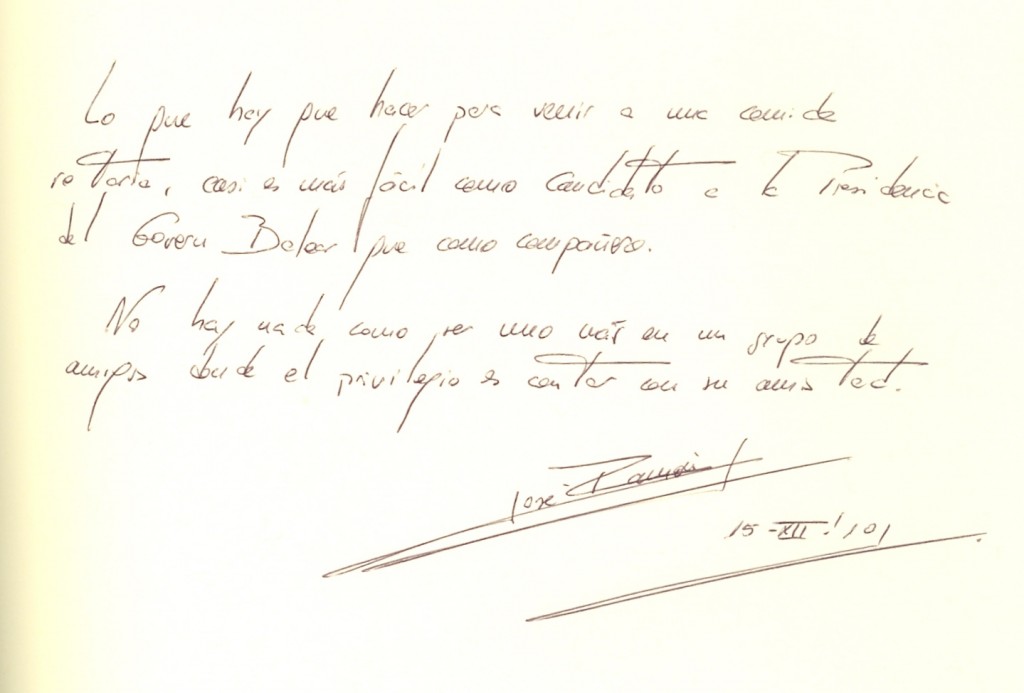 Lo que hay que hacer para venir a una comida
rotaria, casi es más fácil como candidato a la Presidencia
del Govern Balear que como compañero.
No hay nada como ser uno más en un grupo de
amigos donde el privilegio es contar con su amistad.
José Ramón
15-XII-'01